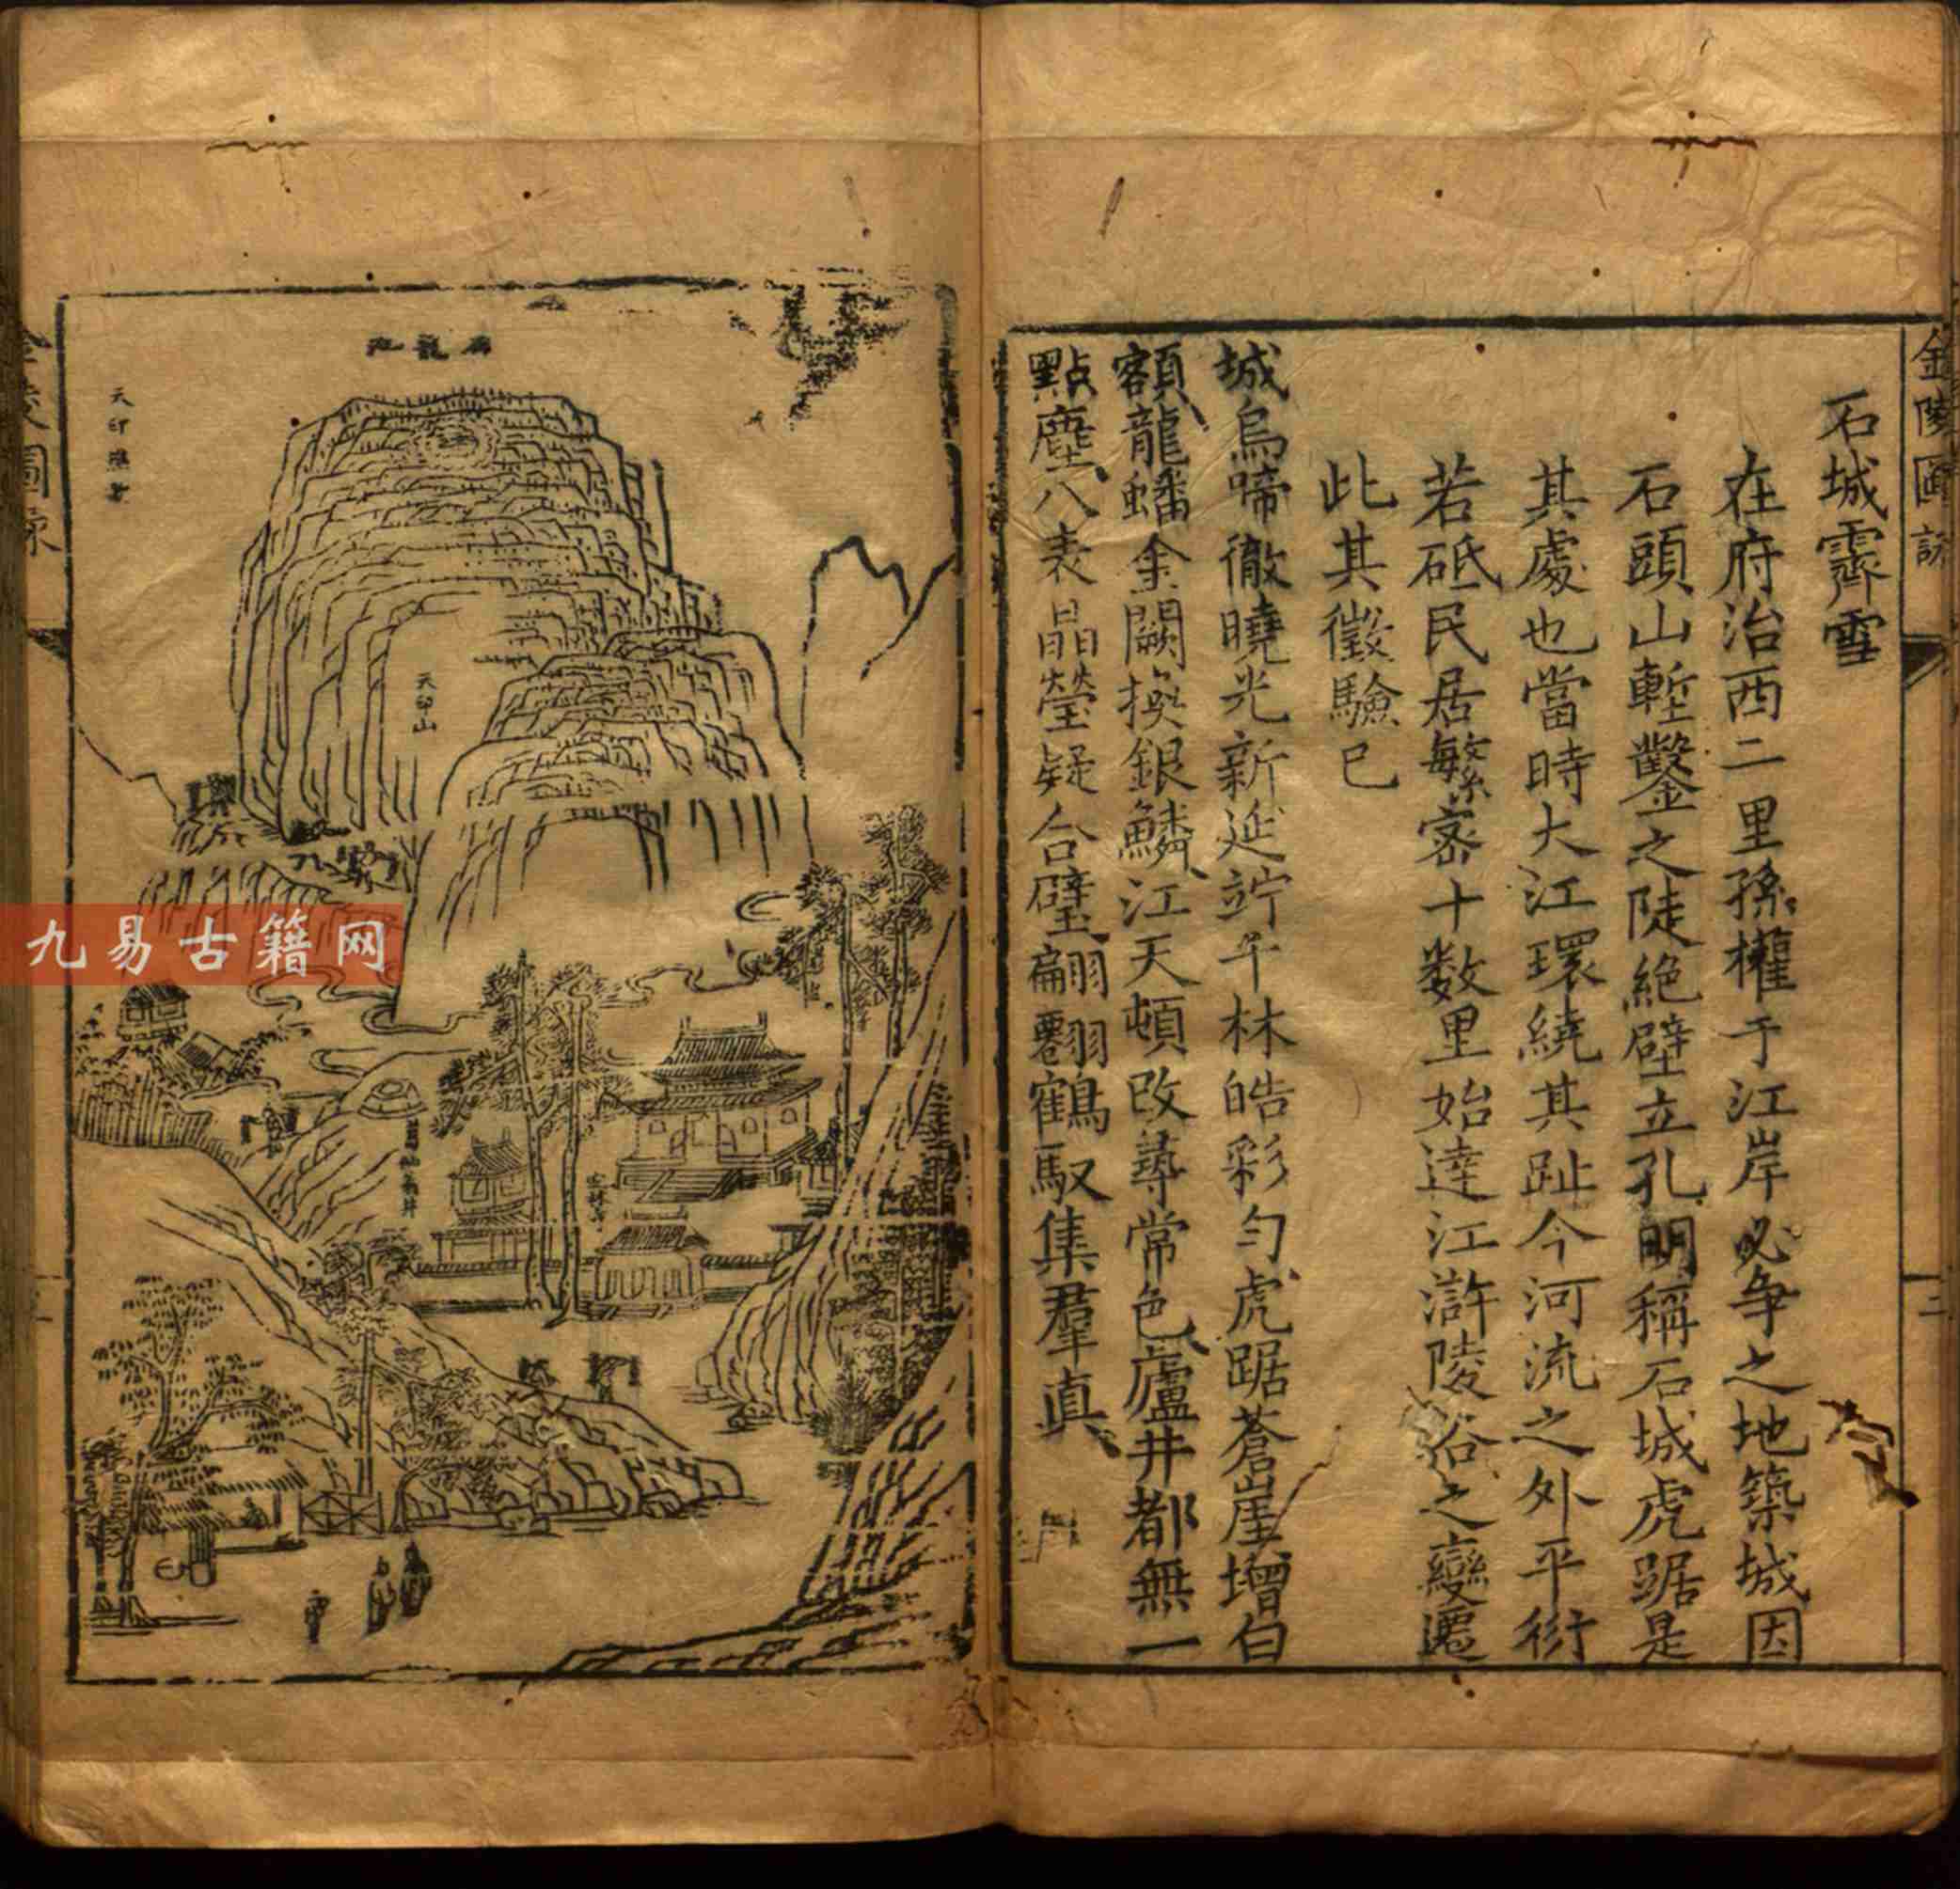 金陵圖詠
石城霽雪
在府治西二里孫權于江岸必争之地築城因
石頭山塹鑿之陡絶壁立孔明稱石城虎踞是
其處也當時大江環繞其趾今河流之外平衍
若砥民居繁宻十数里始逹江滸陵谷之變遷
此其徵驗已
城烏啼徹曉光新延竚千林皓彩勻虎踞蒼崖增白
額龍蟠金闕換銀鱗江天頓改尋常色廬井都無一
點塵八表晶瑩疑合璧翩翾鶴馭集羣真
二
天印山
天印樵歌
定林寺
葛仙翁井
九易古籍网